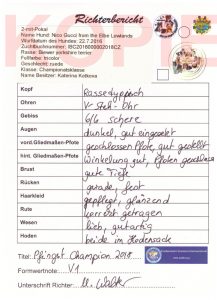 KOPIE
Richterbericht
2-rssd-Pokal
Name Hund: Nico Gucci from the Elbe Lowlands
Wurfdatum des Hundes: 22.7.2016
Zuchtbuchnummer: IBC2018000002018CZ
Rasse: Biewer yorkshire terrier
Fellfarbe: tricolor
Geschlecht: ruede
Klasse: Championatsklasse
Name Besitzer: Katerina Kotkova
Kopf rassetypisch
Ohren V Steh-Ohr
Gebiss 6/6 schere
Augen dunkel, gut eingesetzt
vord.Gliedmaßen-Pfote geschlossen Pfote, gut gestellt
hint. Gliedmaßen-Pfote Winkellung gut, Pfoten geschlossen
Brust gute Tiefe
Rücken gerade, fest
Haarkleid gepflegt, glänzend
Rute korrekt getragen
Wesen lieb, gutartig
Hoden beide im Hodensack
Titel: Pfingst Champion 2018
Formwertnote: V1
Unterschrift Richter: